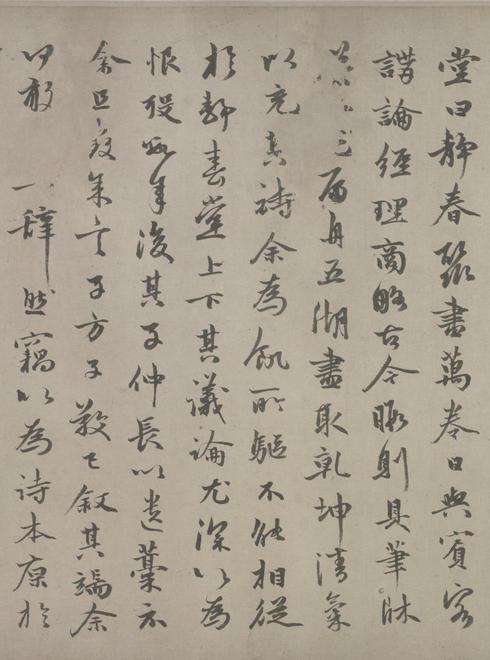 堂曰静春聚書萬卷日與賓客
講論經理商略古今暇則具筆牀
茶竈扁舟五湖盡取乾坤清氣
以充其詩余為飢所驅不能相從
於静春堂上下其議論尤深以為
恨後數年復其子仲長以遺藁示
余且年子方子敍其端余
何敢一辭然竊以為詩本原於